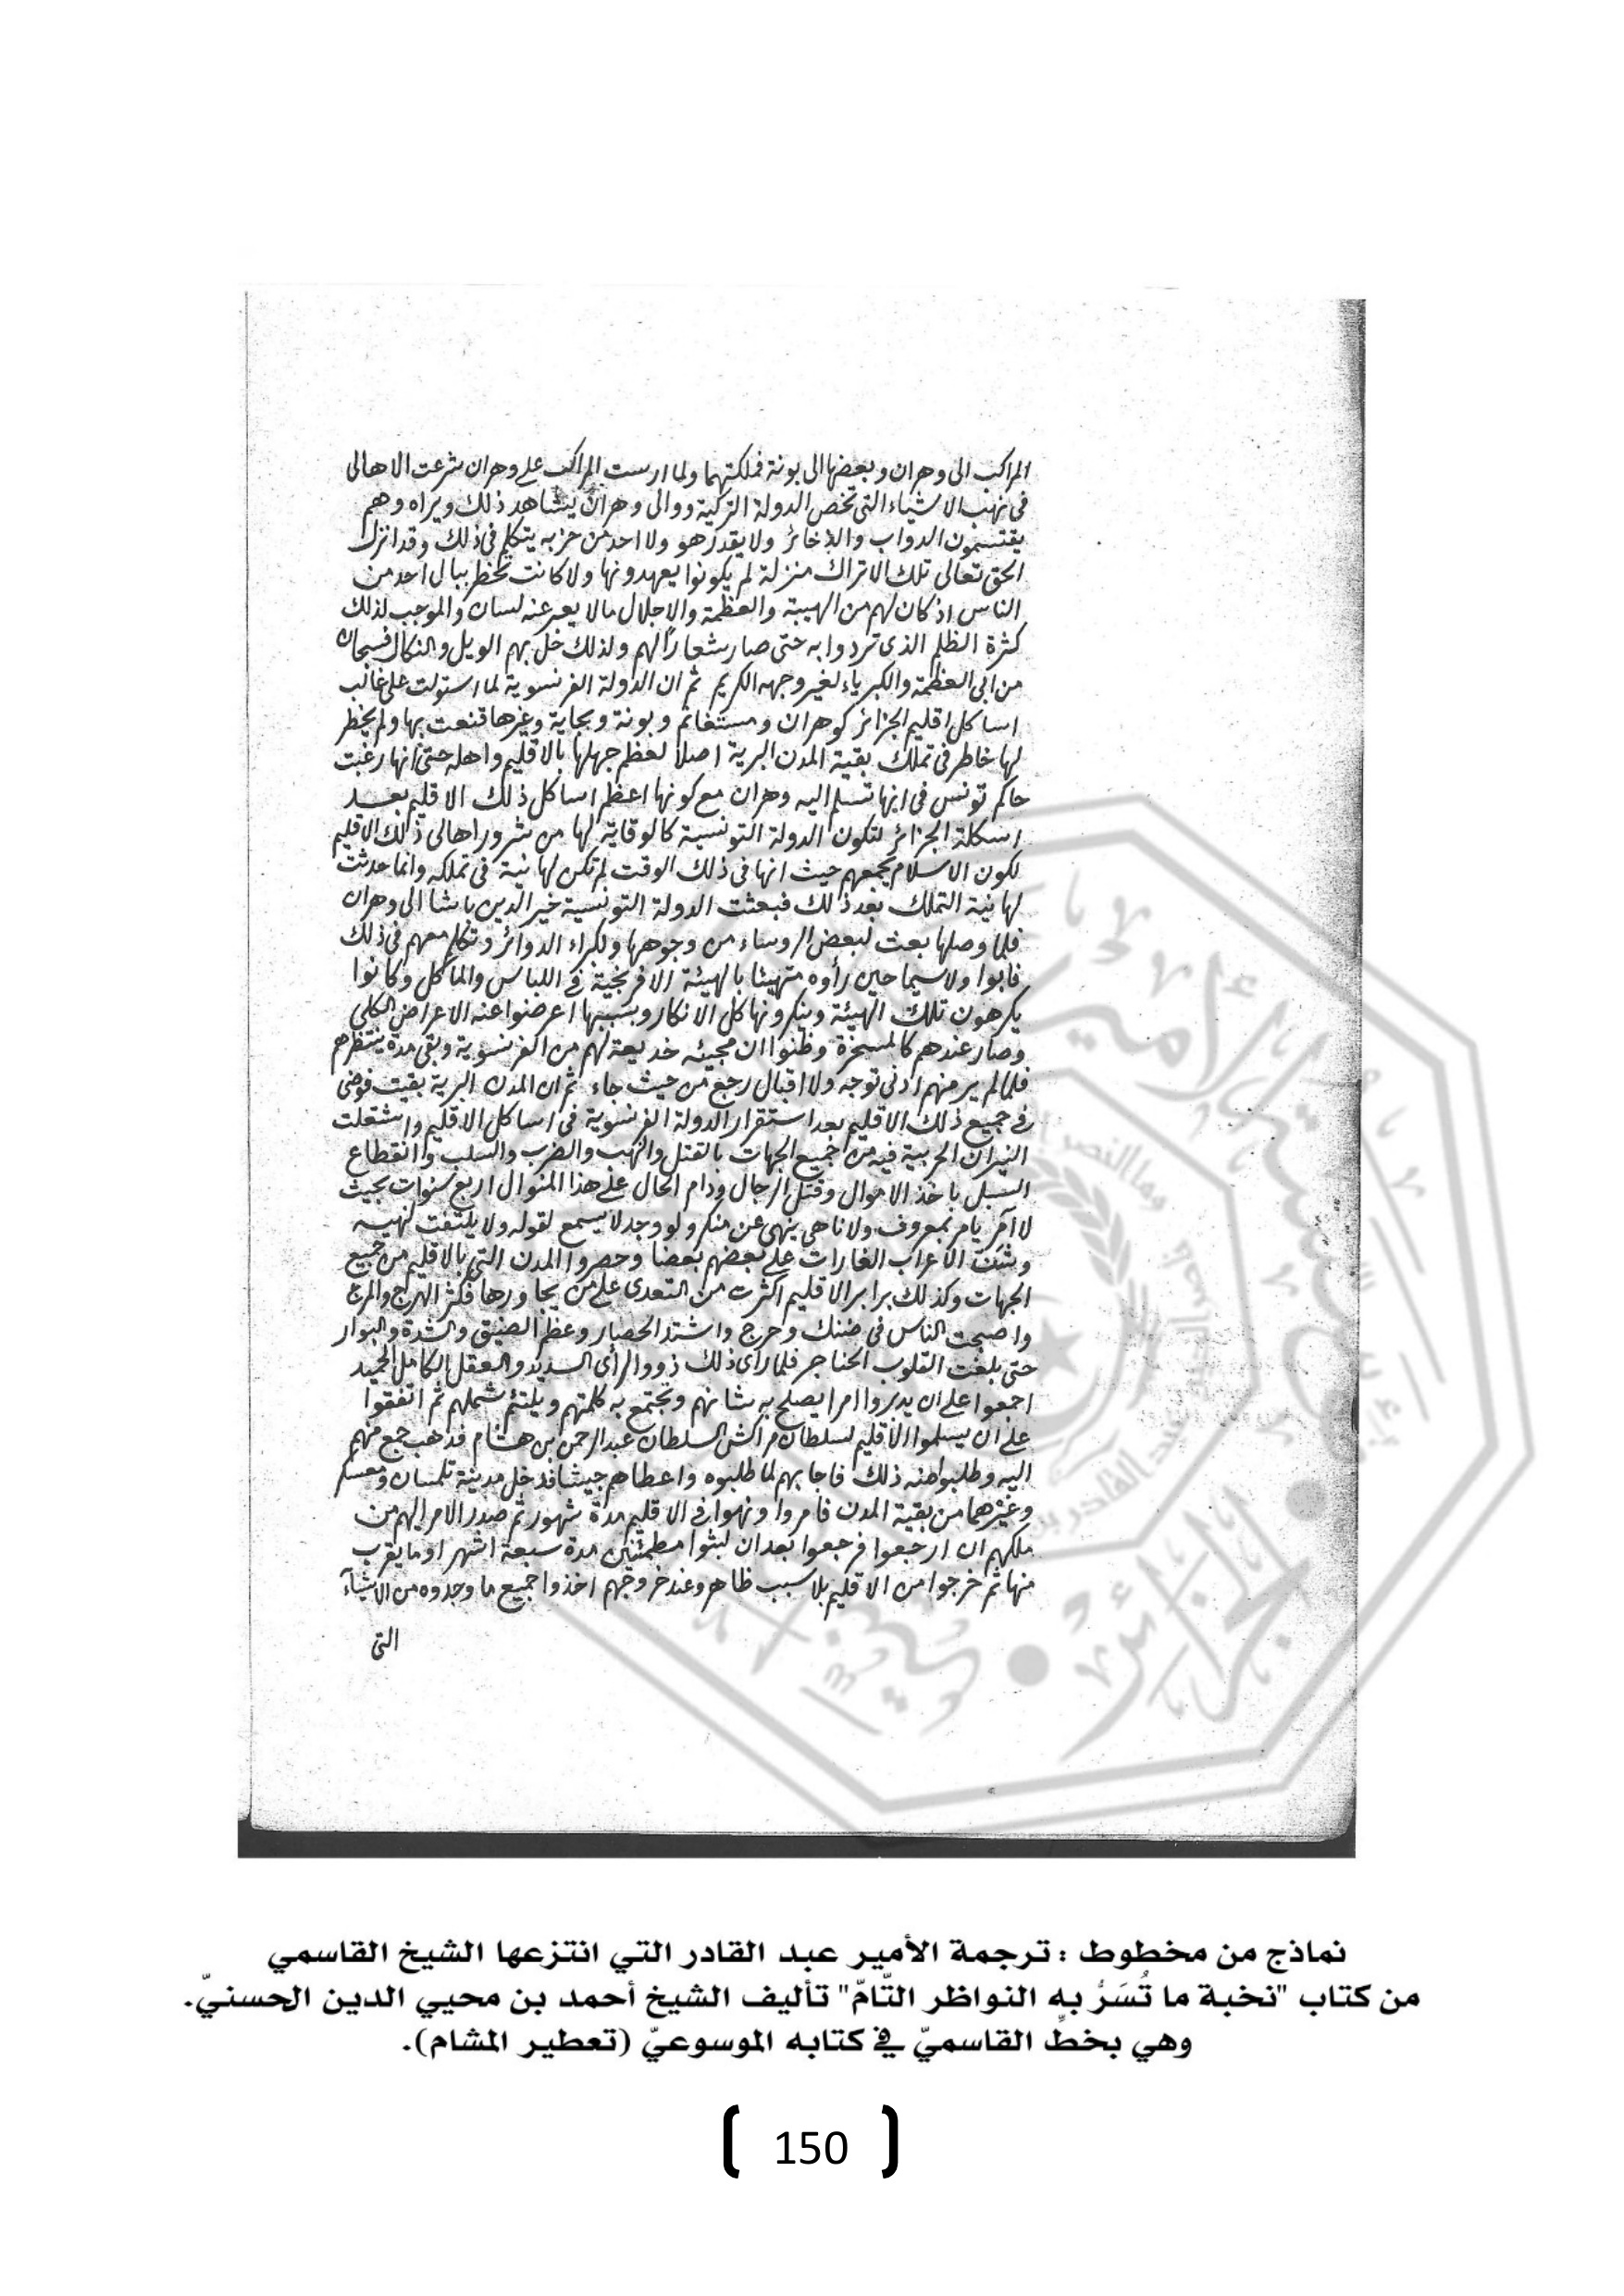 المراكب الى وهران وبعضها الى بونة فملكتهما ولما ارست المراكب على وهران شرعت الاهالى
فى نهب الاشياء التى تخص الدولة التركية ووالى وهران يشاهد ذلك ويراه وهم
يقتسمون الدواب والذخائر ولا يقدر هو ولا احد من حزبه يتكلم فى ذلك وقد انزل
الحق تعالى تلك الاتراك منزلة لم يكونوا يعهدونها ولا كانت تخطر ببال احد من
الناس اذ كان لهم من الهيبة والعظمة والاجلال مالا يعبر عنه لسان والموجب لذلك
كثرة الظلم الذى تردوا به حتى صار شعارًا لهم ولذلك حل بهم الويل والنكال فسبحان
من ابى العظمة والكبرياء لغير وجهه الكريم ثم ان الدولة الفرنسوية لما استولت على غالب
اساكل اقليم الجزائر كوهران ومستغانم وبونة وبجاية وغيرها قنعت بها ولم يخطر
لها خاطر فى تملك بقية المدن البرية اصلا لعظم جهلها بالاقليم واهله حتى انها رغبت
حاكم تونس فى انها تسلم اليه وهران مع كونها اعظم اساكل ذلك الاقليم بعد
اسكلة الجزائر لتكون الدولة التونسية كالوقاية لها من شرور اهالى ذلك الاقليم
لكون الاسلام يجمعهم حيث انها فى ذلك الوقت لم تكن لها نية فى تملكه وانما حدثت
لها نية التملك بعد ذلك فبعثت الدولة التونسية خير الدين باشا الى وهران
فلما وصلها بعث لبعض الروساء من وجوهها ولكبراء الدوائر وتكلم معهم فى ذلك
فابوا ولاسيما حين رأوه متهيئا بالهيئة الافرنجية فى اللباس والماكل وكانوا
يكرهون تلك الهيئة وينكرونها كل الانكار وبسببها اعرضوا عنه الاعراض الكلى
وصار عندهم كالمسخرة وظنوا ان مجيئه خديعة لهم من الفرنسوية وبقى مدة ينتظرهم
فلما لم ير منهم ادنى توجه ولا اقبال رجع من حيث جاء ثم ان المدن البرية بقيت فوضى
فى جميع ذلك الاقليم بعد استقرار الدولة الفرنسوية فى اساكل الاقليم واشتعلت
النيران الحربية فيه من جميع الجهات بالقتل والنهب والضرب والسلب وانقطاع
السبل باخذ الاموال وقتل الرجال ودام الحال على هذا المنوال اربع سنوات بحيث
لا آمر يامر بمعروف ولا ناهى ينهى عن منكر ولو وجد لا يسمع لقوله ولا يلتفت لنهيه
وشنت الاعراب الغارات على بعضهم بعضا وحصروا المدن التى بالاقليم من جميع
الجهات وكذلك برابر الاقليم اكثرت من التعدى على من يجاورها فكثر الهرج والمرج
واصبحت الناس فى ضنك وحرج واشتد الحصار وعظم الضيق والشدة والبوار
حتى بلغت القلوب الحناجر فلما راى ذلك ذووا الرأى السديد والعقل الكامل الحميد
اجمعوا على ان يدبروا امرا يصلح به شانهم وتجتمع به كلمتهم ويلتئم شملهم ثم اتفقوا
على ان يسلموا الاقليم لسلطان مراكش السلطان عبد الرحمن بن هشام فذهب جمع منهم
اليه وطلبوا منه ذلك فاجابهم لما طلبوه واعطاهم جيشا فدخل مدينة تلمسان ومعسكر
وغيرهما من بقية المدن فامروا ونهوا فى الاقليم مدة شهور ثم صدر الامر اليهم من
ملكهم ان ارجعوا فرجعوا بعد ان لبثوا مطمئنين مدة سبعة اشهر او ما يقرب
منها ثم خرجوا من الاقليم بلا سبب ظاهر وعند خروجهم اخذوا جميع ما وجدوه من الاشيآء
التى
نماذج من مخطوط : ترجمة الأمير عبد القادر التي انتزعها الشيخ القاسمي
من كتاب "نخبة ما تُسَرُّ به النواظر التّامّ" تأليف الشيخ أحمد بن محيي الدين الحسنيّ.
وهي بخطّ القاسميّ في كتابه الموسوعيّ (تعطير المشام).
150